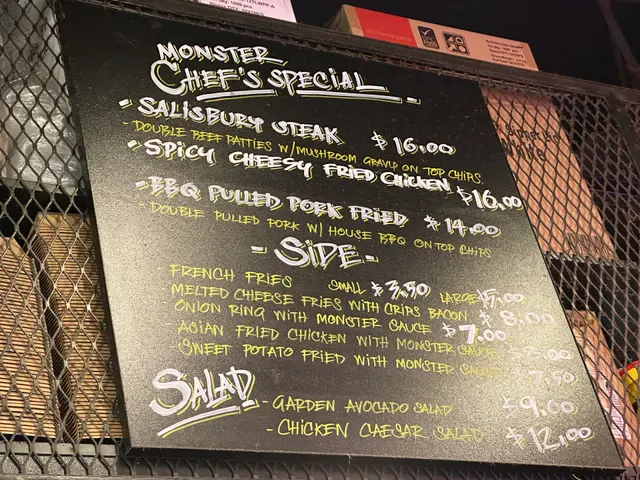 MONSTER
CHEF'S SPECIAL -
- SALISBURY STEAK $16.00
- DOUBLE BEEF PATTIES W/MUSHROOM GRAVY ON TOP CHIPS
- SPICY CHEESY FRIED CHICKEN $16.00
- BBQ PULLED PORK FRIED $14.00
- DOUBLE PULLED PORK W/ HOUSE BBQ ON TOP CHIPS
- SIDE -
- FRENCH FRIES SMALL $3.50 LARGE $5.00
MELTED CHEESE FRIES WITH CRIPS BACON $8.00
ONION RING WITH MONSTER SAUCE $7.00
ASIAN FRIED CHICKEN WITH MONSTER SAUCE
- SWEET POTATO FRIED WITH MONSTER SAUCE $7.50
SALAD
- GARDEN AVOCADO SALAD $9.00
- CHICKEN CAESAR SALAD $12.00